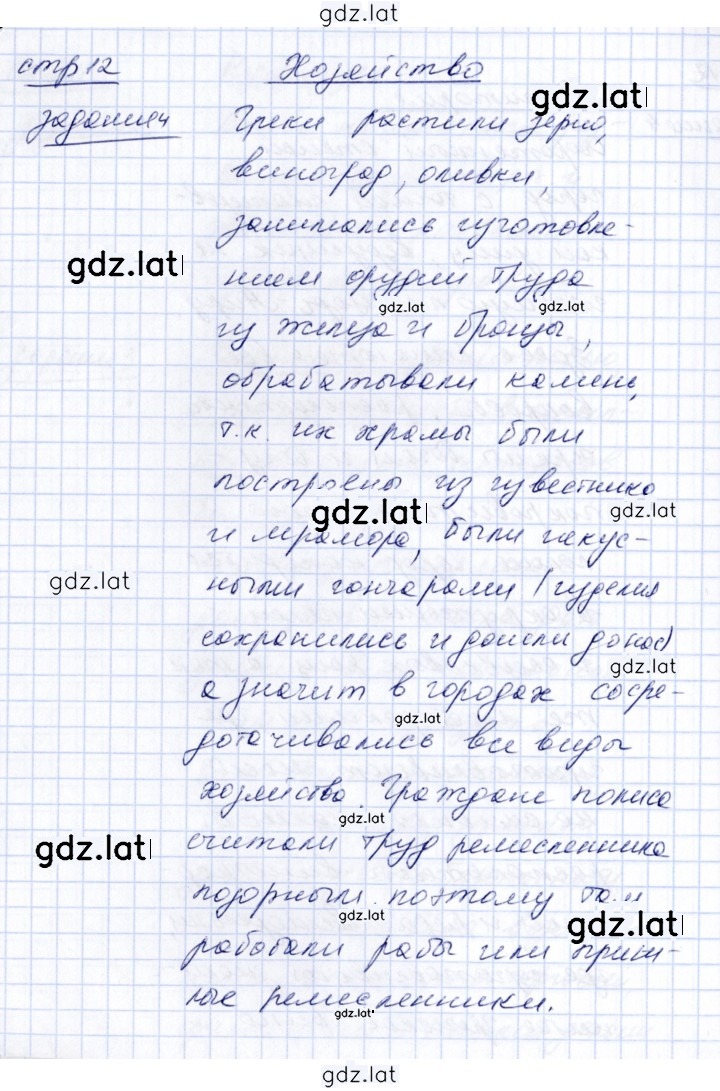 gdz.lat
стр 12 Хозяйство
gdz.lat
задание 4 Греки растили зерно,
виноград, оливки,
занимались изготовле-
gdz.lat
нием орудий труда
gdz.lat gdz.lat
из железа и бронзы,
обрабатывали камень,
т.к. их храмы были
построены из известняка
gdz.lat gdz.lat
и мрамора, были искус-
gdz.lat
ными гончарами (изделия
сохранились и дошли до нас)
gdz.lat
а значит в городах сосре-
gdz.lat
доточивались все виды
хозяйства. Граждане полиса
gdz.lat
считали труд ремесленника
gdz.lat
позорным поэтому там
gdz.lat gdz.lat
работали рабы или приш-
лые ремесленники.
gdz.lat
gdz.lat